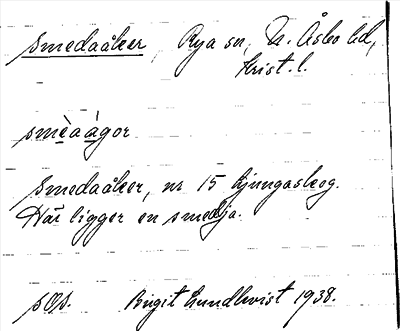 Smedaåker, Rya sn, N. Åsbo hd,
Krist. l.
smèaágor
Smedaåker, nr 15 Ljungaskog.
Här ligger en smedja.
Birgit Lundkvist 1938.